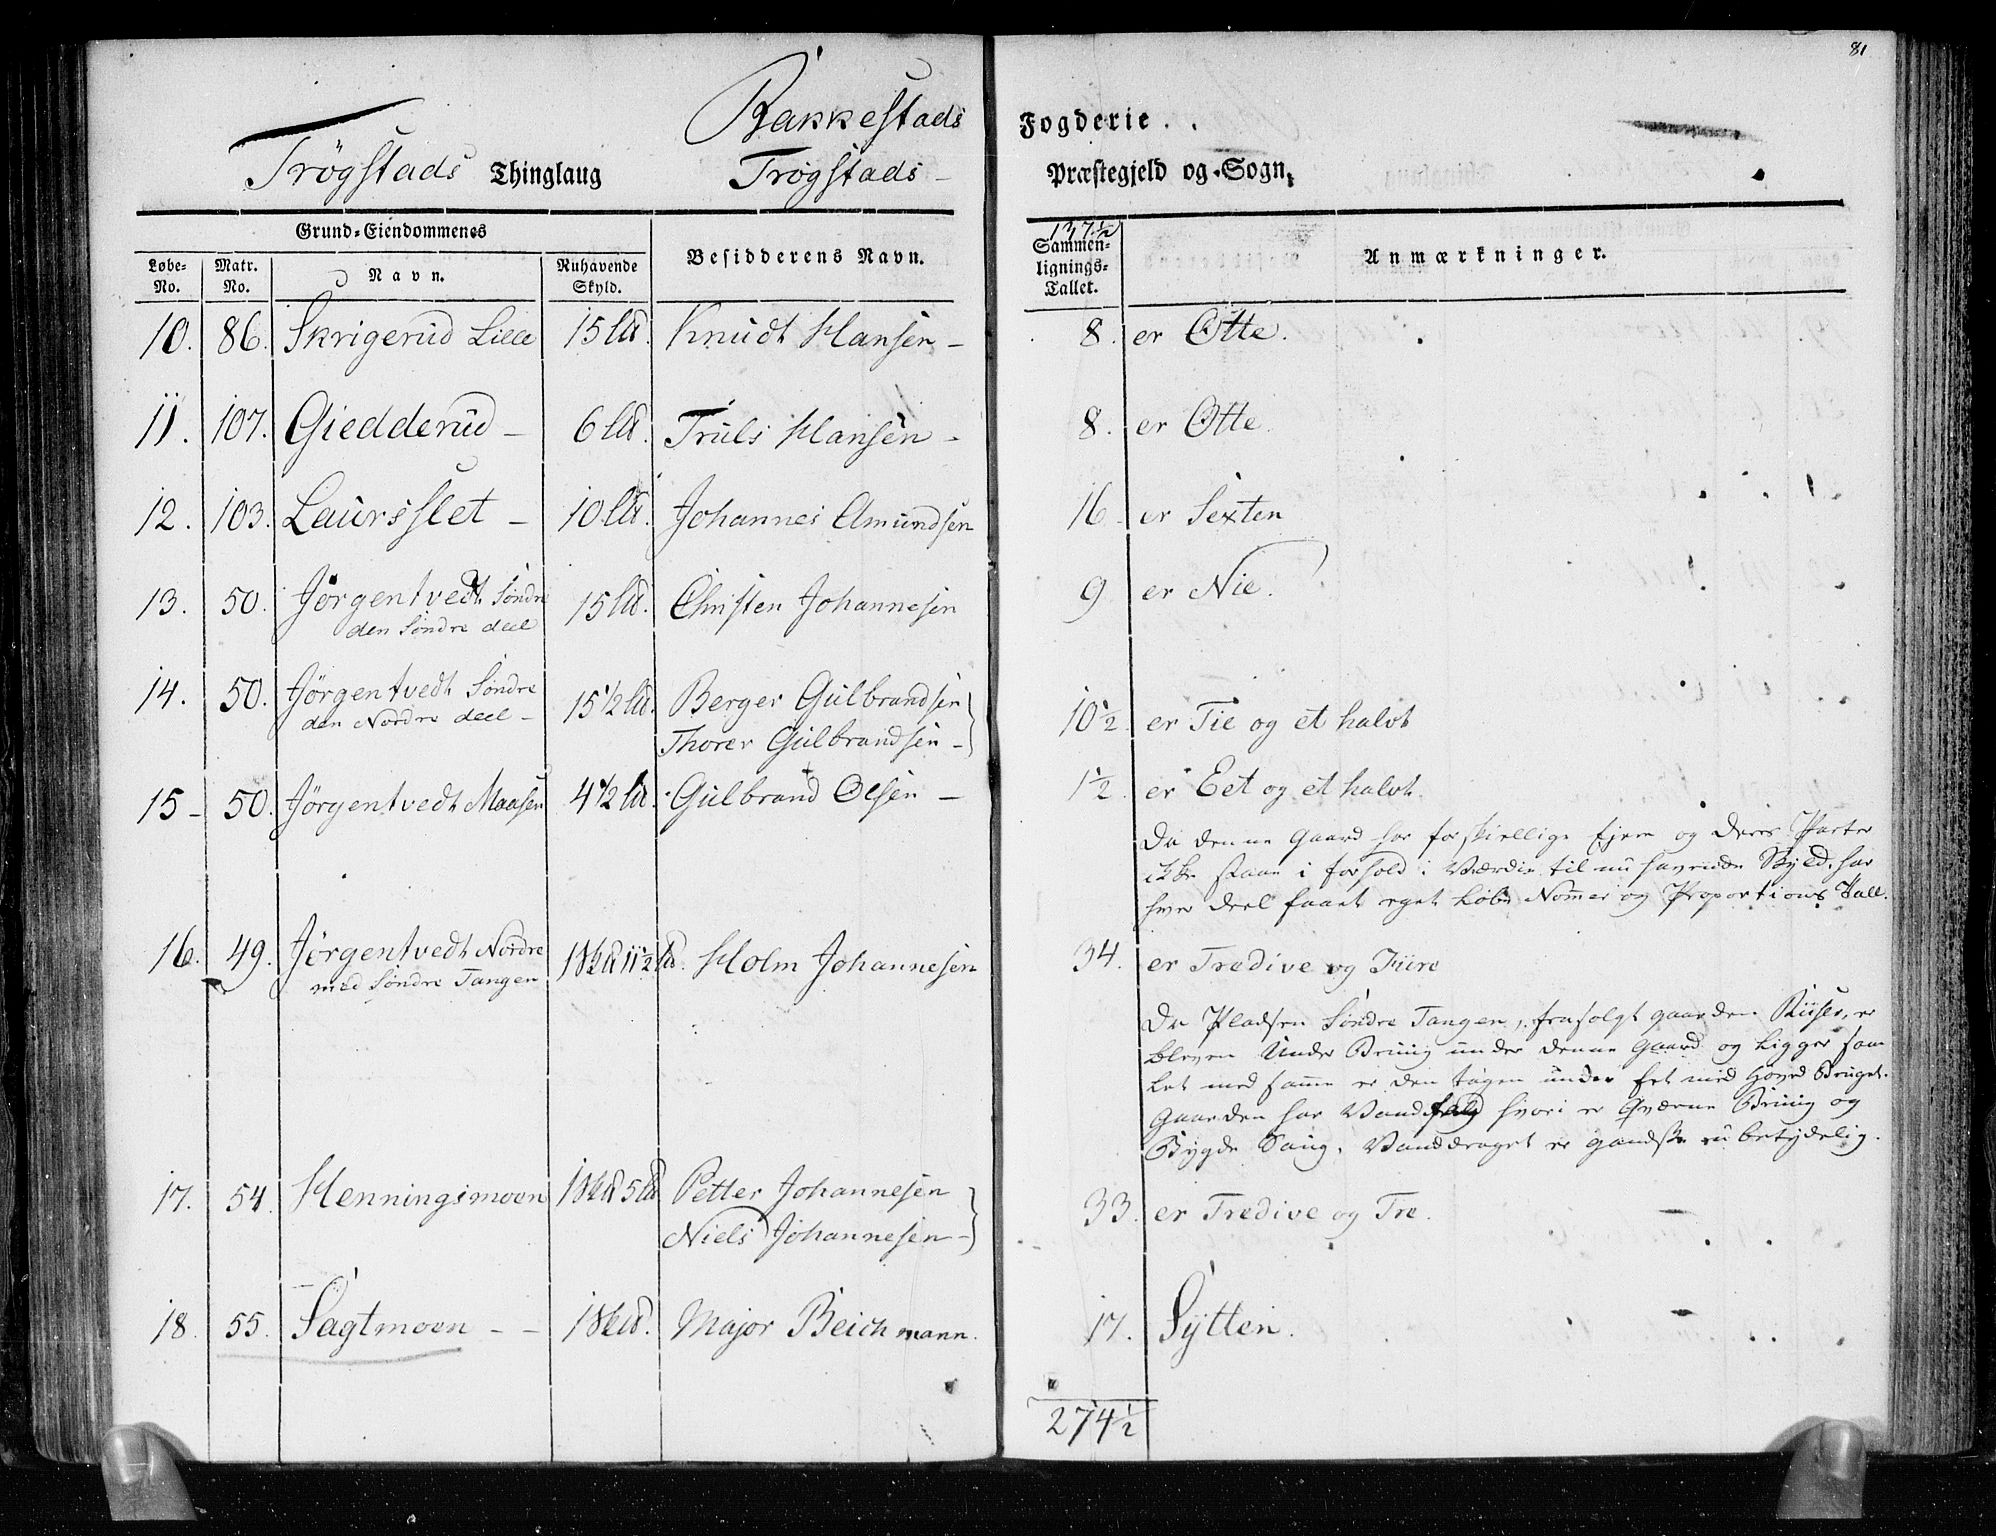 81
Rakkestads Fogderie.
Trögstads Thinglaug Trögstads Præstegjeld og Sogn,
Grund-Eiendommenes
Løbe-No. Matr. No. Navn. Ruhavende Skyld. Besidderens Navn. Sammenlignings-Tallet. Anmærkninger.
137½
10. 86. Skrigerud Lille 15 lb. Knudt Hansen - 8. er Otte.
11. 107. Giedderud - 6 lb. Truls Hansen - 8. er Otte.
12. 103. Laursslet - 10 lb. Johannes Amundsen 16 er Sexten
13. 50. Jörgentvedt Söndre 15 lb. Christen Johannesen 9 er Nie.
den Söndre deel
14. 50. Jörgentvedt Söndre 15½ lb. Berger Gulbrandsen
den Nordre deel - Thorer Gulbrandsen - 10½ er Tie og et halvt
15 - 50. Jörgentvedt Maasen 4½ lb. Gulbrand Olsen - 1½ er Eet og et halvt.
Da denne Gaard har forskiellige Ejere og deres Parter
ikke staae i forhold i Værdie til nu havende Skyld, har
hver deel faaet eget Løbe Nommer og Proportions Tall.
16. 49. Jörgentvedt Nordre 1 11½ lb. Holm Johannesen 34. er Tredive og Fiire
med Söndre Tangen
Da Pladsen Söndre Tangen, frasolgt gaarden Riiser, er
bleven under Bruug under denne Gaard og ligger sam
let med samme er den tagen under Eet med Hoved Bruget.
Gaarden har Vandfald hvori er Qværne Bruug og
Bygde Saug. Vanddraget er gandske ubetydelig.
17. 54. Henningsmoen 1 5 lb Petter Johannesen
Niels Johannesen - 33. er Tredive og Tre.
18. 55. Sagtmoen - - 1 Major Beichmann. 17. Sÿtten.
274½